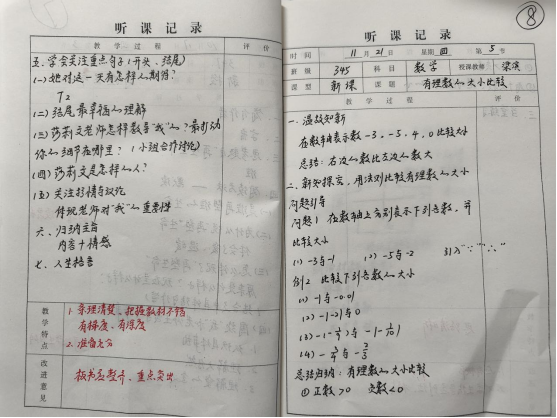 听课记录
教学过程 评价
五、学会关注重点句子(开头、结尾)
(一)她对这一天有怎样的期待?
T2
(二)结尾最幸福的理解
(三)莎莉文老师怎样教导"我"的?最打动
你的细节在哪里?(小组合作讨论)
(四)莎莉文是怎样的人?
(五)关注抒情与议论
体现老师对"我"的重要性
六、归纳主旨
内容+情感
七、人生格言
教学特点
1.条理清楚、把握教材不错
有梯度、有深度
2.准备充分
改进意见
板书应整齐、重点突出
⑧
听课记录
时间 11月21日 星期四 第5节
班级 345 科目 数学 授课教师
课型 新课 课题 有理数的大小比较
教学过程 评价
一、温故知新
在数轴表示数-3,-5,4,0比较大小
总结:右边的数比左边的数大
二、新知探究,用法则比较有理数的大小
问题引导
问题1 在数轴上分别表示下列各数,并
比较大小
(1) -3与-1 (2) -5与-2 引入"∵""∴"
例2 比较下列各数的大小
(1) -1与-0.01
(2) -|-2|与0
总结归纳:有理数的大小比较
①正数>0 负数<0